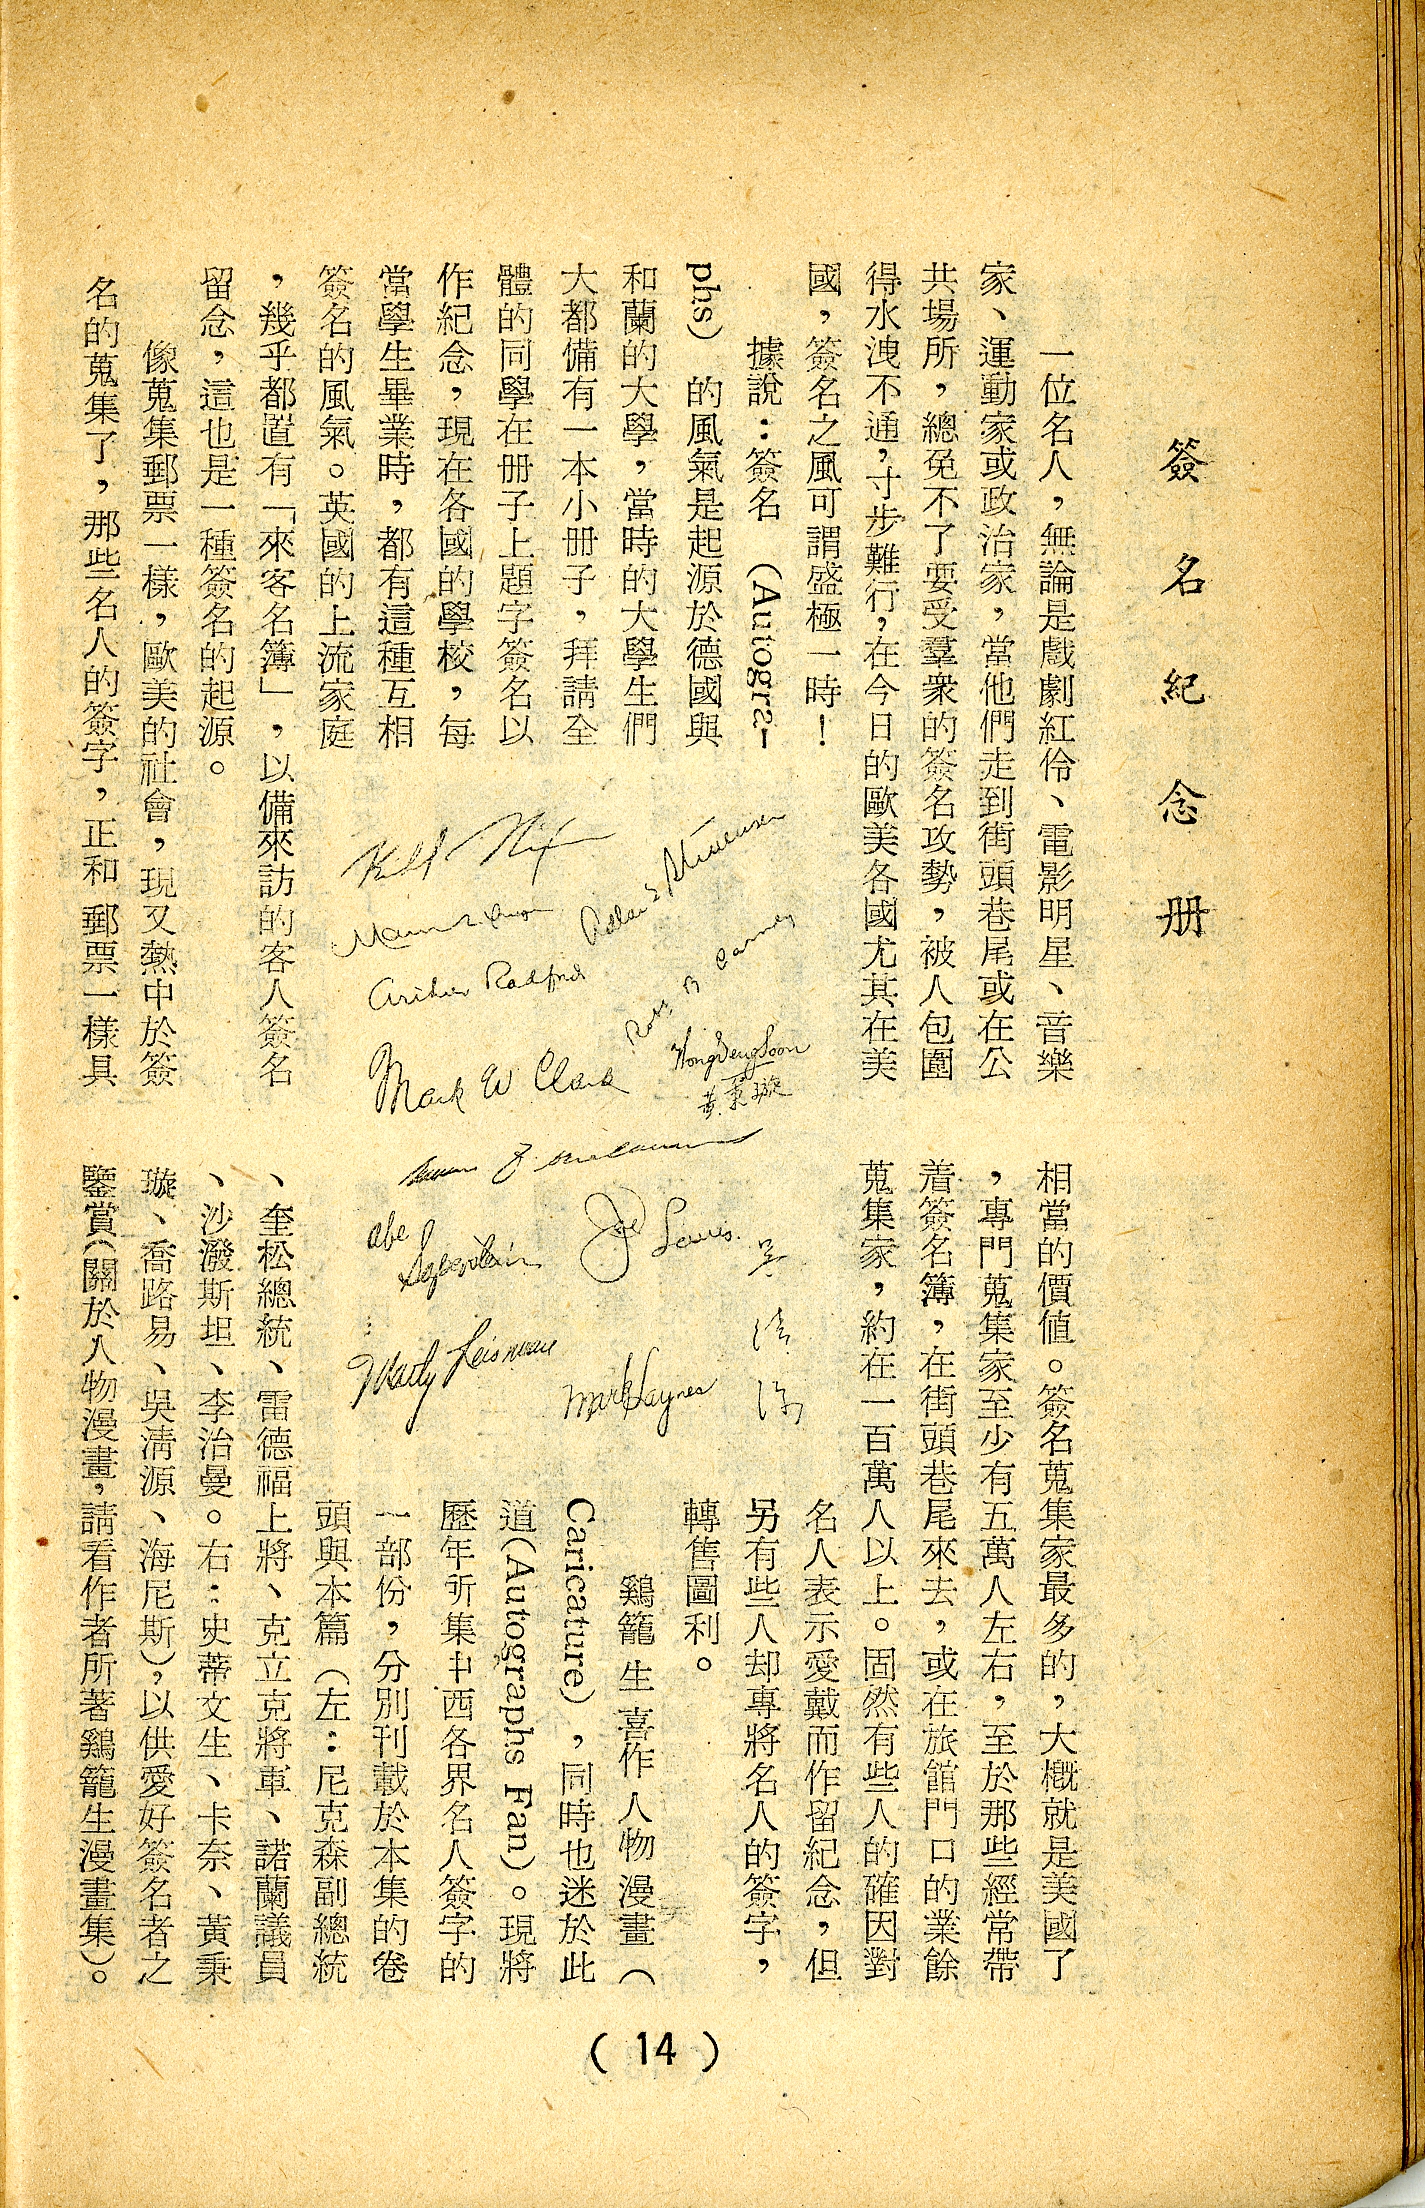 簽名紀念册
一位名人，無論是戲劇紅伶、電影明星、音樂
家、運動家或政治家，當他們走到街頭巷尾或在公
共場所，總免不了要受羣衆的簽名攻勢，被人包圍
得水洩不通，寸步難行，在今日的歐美各國尤其在美
國，簽名之風可謂盛極一時！
據說：簽名（Autogra-
phs）的風氣是起源於德國與
和蘭的大學，當時的大學生們
大都備有一本小册子，拜請全
體的同學在册子上題字簽名以
作紀念，現在各國的學校，每
當學生畢業時，都有這種互相
簽名的風氣。英國的上流家庭
，幾乎都置有「來客名簿」，以備來訪的客人簽名
留念，這也是一種簽名的起源。
像蒐集郵票一樣，歐美的社會，現又熱中於簽
名的蒐集了，那些名人的簽字，正和郵票一樣具
Adlai E Stevenson
Arthur Radford
Mark W Clark
Wong Peng Soon
黃秉璇
Abe Saperstein
Joe Louis
吳清源
Marty Leisman
Mark Haynes
相當的價値。簽名蒐集家最多的，大槪就是美國了
，專門蒐集家至少有五萬人左右，至於那些經常帶
着簽名簿，在街頭巷尾來去，或在旅館門口的業餘
蒐集家，約在一百萬人以上。固然有些人的確因對
名人表示愛戴而作留紀念，但
另有些人却專將名人的簽字，
轉售圖利。
鷄籠生喜作人物漫畫（
Caricature），同時也迷於此
道(Autographs Fan)。現將
歷年所集中西各界名人簽字的
一部份，分別刊載於本集的卷
頭與本篇（左：尼克森副總統
、奎松總統、雷德福上將、克立克將軍、諾蘭議員
、沙潑斯坦、李治曼。右：史蒂文生、卡奈、黃秉
璇、喬路易、吳淸源、海尼斯），以供愛好簽名者之
鑒賞（關於人物漫畫，請看作者所著鷄籠生漫畫集）。
( 14 )